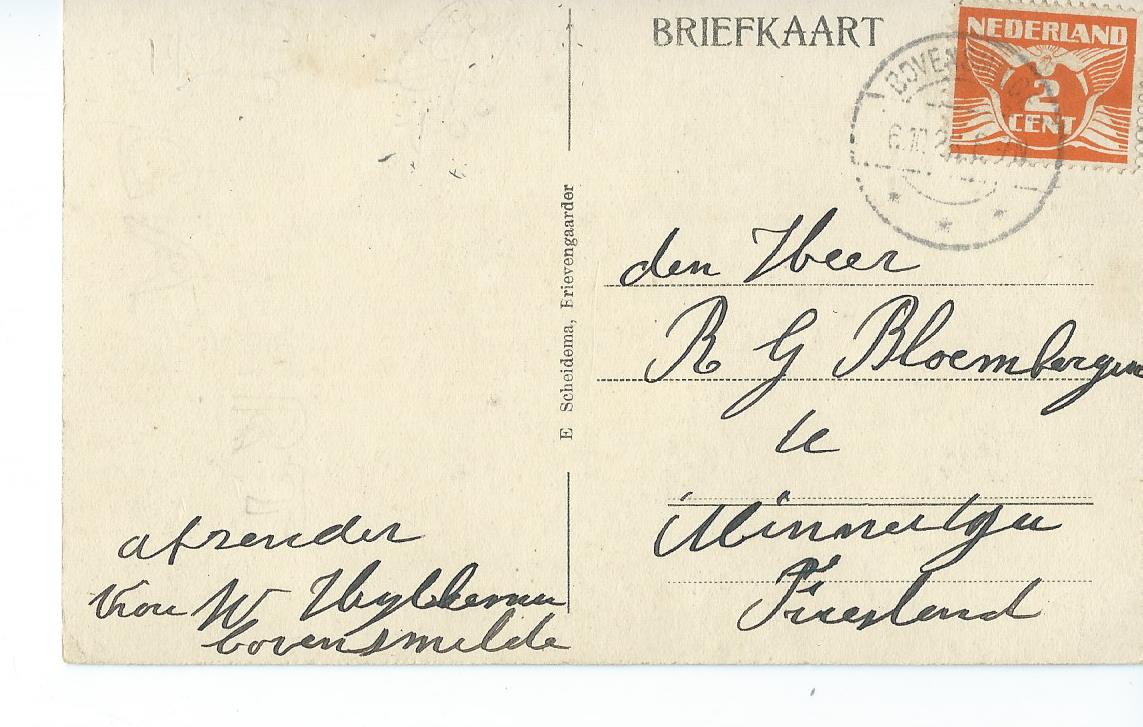 BRIEFKAART
NEDERLAND
2
CENT
6.10
E Scheidema, Brievengaarder
den Heer
R G Bloembergen
te
Minnertsga
Friesland
afzender
W
bovensmilde